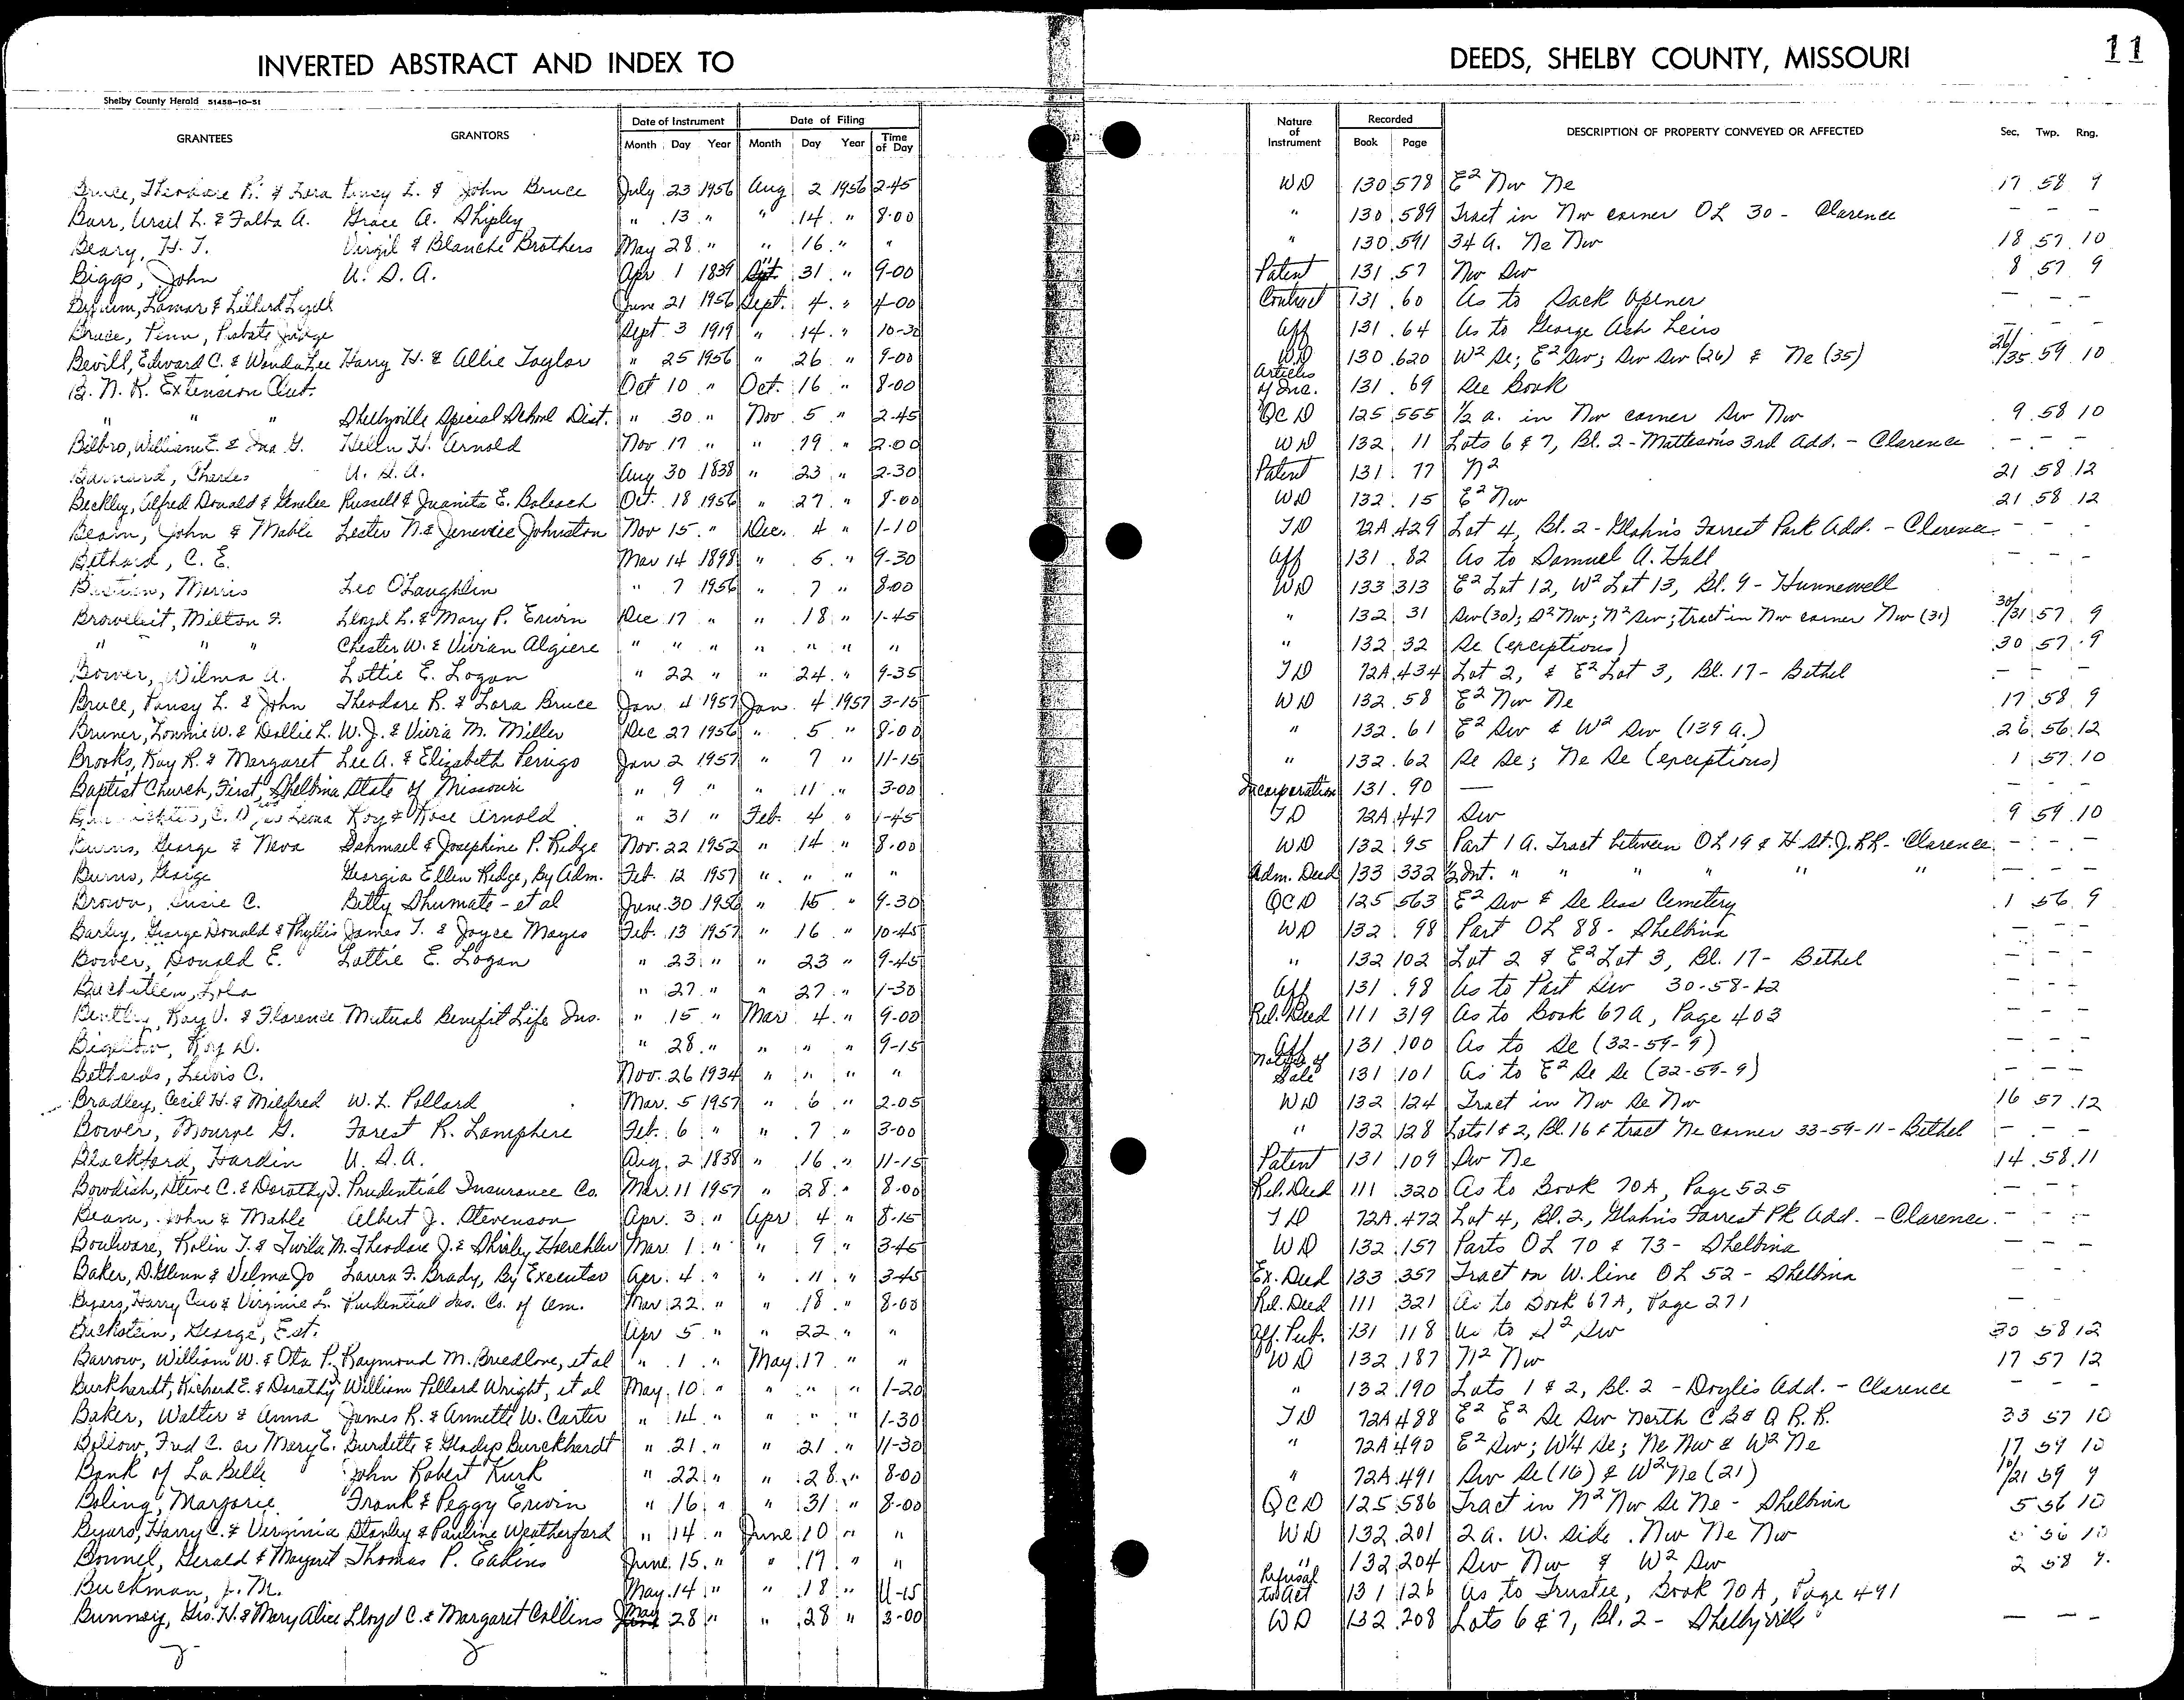 INVERTED ABSTRACT AND INDEX TO DEEDS, SHELBY COUNTY, MISSOURI 11
Shelby County Herald 51458-10-51
GRANTEES GRANTORS Date of Instrument Month Day Year Date of Filing Month Day Year Time of Day Nature of Instrument Recorded Book Page DESCRIPTION OF PROPERTY CONVEYED OR AFFECTED Sec. Twp. Rng.
Bruce, Theodore R. & Lora Pansy L. & John Bruce July 23 1956 Aug 2 1956 2-45 WD 130 578 E² Nw Ne 17 58 9
Barr, Ursel L. & Falba A. Grace A. Shipley " 13 " " 14 " 8-00 " 130 589 Tract in Nw corner OL 30 - Clarence - - -
Beary, H. T. Virgil & Blanche Brothers May 28 " " 16 " " " 130 591 34 A. Ne Nw 18 57 10
Biggs, John U. S. A. Apr 1 1839 " 31 " 9-00 Patent 131 57 Nw Sw 8 57 9
Lamar & Lillard June 21 1956 Sept. 4 " 4-00 Contract 131 60 As to Sack Opener - - -
Bruce, Penn, Probate Judge Sept 3 1919 " 14 " 10-30 Aff 131 64 As to George Ash Heirs - - -
Bevill, Edward C. & Wanda Lee Harry H. & Allie Taylor " 25 1956 " 26 " 9-00 WD 130 620 W² Se; E² Sw; Sw Sw (26) & Ne (35) 26/35 59 10
B. N. K. Extension Club. Oct 10 " Oct. 16 " 8-00 Articles of Inc. 131 69 See Book
" " " Shelbyville Special School Dist. " 30 " Nov 5 " 2-45 QCD 125 555 1/2 a. in Nw corner Sw Nw 9 58 10
Bilbro, William E. & Ina G. Helen H. Arnold Nov 17 " " 19 " 2-00 WD 132 11 Lots 6 & 7, Bl. 2 - Matteson's 3rd Add. - Clarence - - -
Barnard, Charles U. S. A. Aug 30 1838 " 23 " 2-30 Patent 131 77 N² 21 58 12
Beckley, Alfred Donald & Genelee Russell & Juanita E. Baleach Oct. 18 1956 " 27 " 8-00 WD 132 15 E² Nw 21 58 12
Beam, John & Mable Lester N. & Jenevice Johnston Nov 15 " Dec. 4 " 1-10 TD 72A 429 Lot 4, Bl. 2 - Glahn's Forrest Park Add. - Clarence - - -
Bethard, C. E. Mar 14 1898 " 5 " 9-30 Aff 131 82 As to Samuel A. Hall - - -
Morris Leo O'Laughlin " 7 1956 " 7 " 8-00 WD 133 313 E² Lot 12, W² Lot 13, Bl. 9 - Hunnewell
Browleit, Milton F. Lloyd L. & Mary P. Erwin Dec 17 " " 18 " 1-45 " 132 31 Sw (30); S² Nw; N² Sw; tract in Nw corner Nw (31) 30/31 57 9
" " " Chester W. & Vivian Algiere " " " " " " " " 132 32 Se (exceptions) 30 57 9
Bower, Wilma A. Lottie E. Logan " 22 " " 24 " 9-35 TD 72A 434 Lot 2, & E² Lot 3, Bl. 17 - Bethel - - -
Bruce, Pansy L. & John Theodore R. & Lora Bruce Jan. 4 1957 Jan. 4 1957 3-15 WD 132 58 E² Nw Ne 17 58 9
Bruner, Lonnie W. & Dollie L. W. J. & Vivia M. Miller Dec 27 1956 " 5 " 8-00 " 132 61 E² Sw & W² Sw (139 a.) 26 56 12
Brooks, Ray R. & Margaret Lee A. & Elizabeth Perrigo Jan 2 1957 " 7 " 11-15 " 132 62 Se Se; Ne Se (exceptions) 1 57 10
Baptist Church, First, Shelbina State of Missouri " 9 " " 11 " 3-00 Incorporation 131 90 — - - -
Leona Roy & Rose Arnold " 31 " Feb. 4 " 1-45 TD 72A 447 Sw 9 59 10
Burns, George & Neva Dahmael & Josephine P. Ridge Nov. 22 1952 " 14 " 8-00 WD 132 95 Part 1 A. Tract between OL 19 & H. St. J. RR - Clarence - - -
Burns, George Georgia Ellen Ridge, By Adm. Feb. 12 1957 " " " " Adm. Deed 133 332 1/2 Int. " " " " " - - -
Brown, Susie C. Betty Shumate - et al June 30 1956 " 15 " 9-30 QCD 125 563 E² Sw & Se less Cemetery 1 56 9
Barley, George Donald & Phyllis James T. & Joyce Mayes Feb. 13 1957 " 16 " 10-45 WD 132 98 Part OL 88 - Shelbina - - -
Bower, Donald E. Lottie E. Logan " 23 " " 23 " 9-45 " 132 102 Lot 2 & E² Lot 3, Bl. 17 - Bethel - - -
Lola " 27 " " 27 " 1-30 Aff 131 98 As to Part Sw 30-58-12 - - -
Bentley, Ray V. & Florence Mutual Benefit Life Ins. " 15 " Mar 4 " 9-00 Rel. Deed 111 319 As to Book 67A, Page 403 - - -
Bigelow, Roy D. " 28 " " " " 9-15 Aff 131 100 As to Se (32-59-9) - - -
Bethards, Lewis C. Nov. 26 1934 " " " " Notice of Sale 131 101 As to E² Se Se (32-59-9) - - -
Bradley, Cecil H. & Mildred W. L. Pollard Mar. 5 1957 " 6 " 2-05 WD 132 124 Tract in Nw Se Nw 16 57 12
Bower, Monroe G. Forest R. Lamphere Feb. 6 " " 7 " 3-00 " 132 128 Lots 1 & 2, Bl. 16 & tract Ne corner 33-59-11 - Bethel - - -
Blackford, Hardin U. S. A. Aug. 2 1838 " 16 " 11-15 Patent 131 109 Sw Ne 14 58 11
Bowdish, Steve C. & Dorothy J. Prudential Insurance Co. Mar. 11 1957 " 28 " 8-00 Rel. Deed 111 320 As to Book 70A, Page 525 - - -
Beam, John & Mable Albert J. Stevenson Apr. 3 " Apr 4 " 8-15 TD 72A 472 Lot 4, Bl. 2, Glahn's Forrest Pk Add. - Clarence - - -
Boulware, Rolin T. & Twila M. Theodore J. & Shirley Hoerchler Mar 1 " " 9 " 3-45 WD 132 157 Parts OL 70 & 73 - Shelbina - - -
Baker, D. Glenn & Velma Jo Laura F. Brady, By Executor Apr. 4 " " 11 " 3-45 Ex. Deed 133 357 Tract on W. line OL 52 - Shelbina
Byars, Harry & Virginia L. Prudential Ins. Co. of Am. Mar 22 " " 18 " 8-00 Rel. Deed 111 321 As to Book 67A, Page 271 - -
George, Est. Apr 5 " " 22 " " Aff. Pub. 131 118 As to S² Sw 30 58 12
Barrow, William W. & Ota P. Raymond M. Breedlove, et al " 1 " May 17 " " WD 132 187 N² Nw 17 57 12
Burkhardt, Richard E. & Dorothy William Pollard Wright, et al May 10 " " " " 1-20 " 132 190 Lots 1 & 2, Bl. 2 - Doyle's Add. - Clarence - - -
Baker, Walter & Anna James R. & Annette W. Carter " 14 " " " " 1-30 TD 72A 488 E² E² Se Sw North C B & Q R. R. 33 57 10
Billow, Fred C. or Mary E. Burdette & Gladys Burckhardt " 21 " " 21 " 11-30 " 72A 490 E² Sw; W¼ Se; Ne Nw & W² Ne 17 59 10
Bank of La Belle John Robert Kurk " 22 " " 28 " 8-00 " 72A 491 Sw Se (16) & W² Ne (21) 16/21 59 9
Boling, Marjorie Frank & Peggy Erwin " 16 " " 31 " 8-00 QCD 125 586 Tract in N² Nw Se Ne - Shelbina 5 56 10
Byars, Harry C. & Virginia Stanley & Pauline Weatherford " 14 " June 10 " " WD 132 201 2 a. W. side Nw Ne Nw 56 10
Bonnel, Gerald & Margaret Thomas P. Eakins June 15 " " 17 " " " 132 204 Sw Nw & W² Sw 2 58 9
Buckman, J. M. May 14 " " 18 " 11-15 Refusal to Act 131 126 As to Trustee, Book 70A, Page 491
Bunney, Geo. H. & Mary Alice Lloyd C. & Margaret Collins May 28 " " 28 " 3-00 WD 132 208 Lots 6 & 7, Bl. 2 - Shelbyville - - -